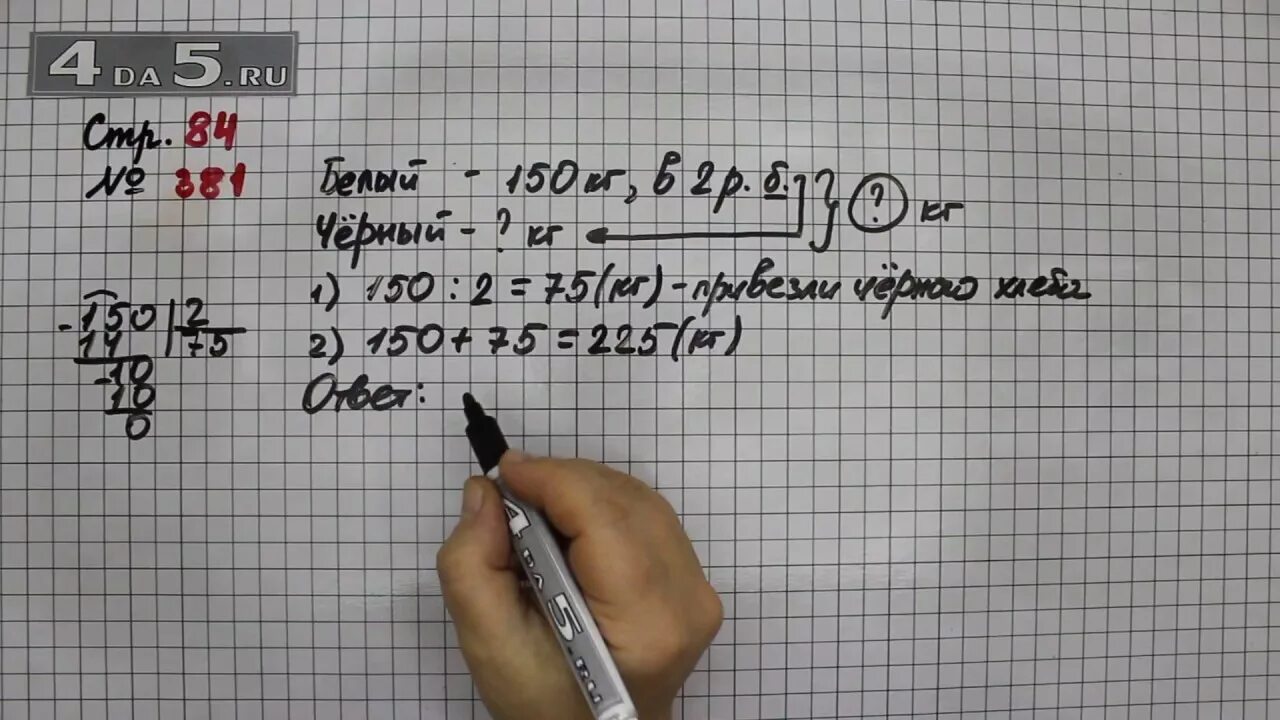 4DA5.RU
Стр. 84
№ 381
Белый - 150 кг, в 2 р. б. } ? кг
Чёрный - ? кг
1) 150 : 2 = 75 (кг) - привезли чёрного хлеба
2) 150 + 75 = 225 (кг)
Ответ:
- 150 | 2
14 | 75
- 10
10
0
4DA5.RU